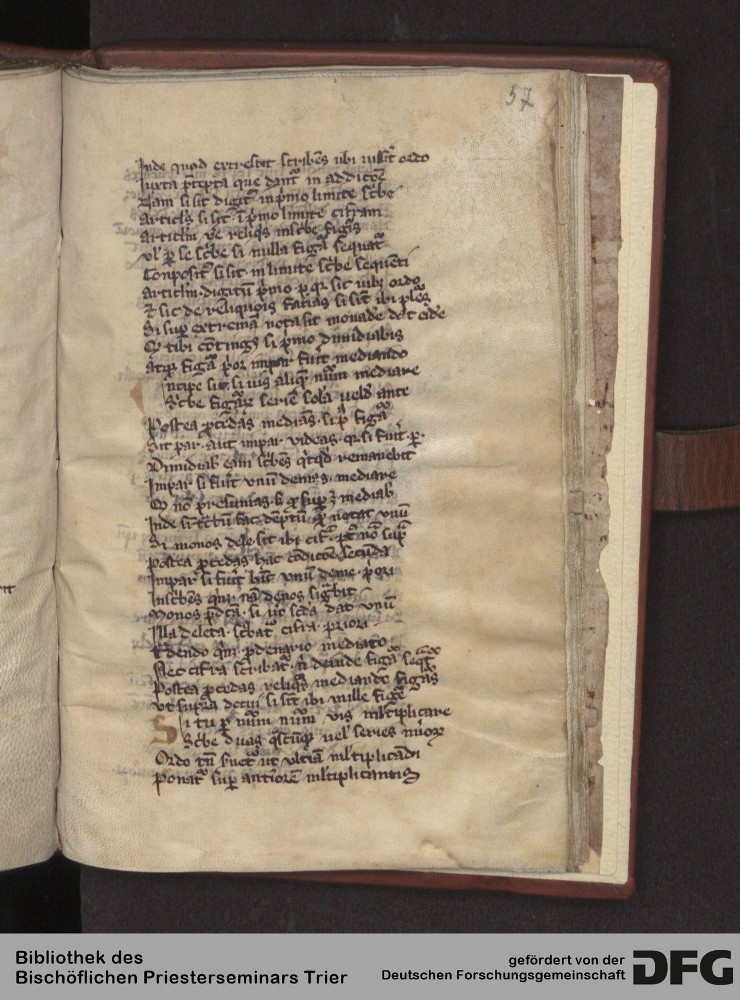 57
Inde quod excrescit scribes ubi iusserit ordo
Iuxta precepta que dantur in additione
Nam si sit digitus in primo limite scribe
Articulus si sit in primo limite cifram
Articulum vero reliquis inscribe figuris
vel per se scribe si nulla figura sequatur
Conpositus si sit in limite scribe sequenti
Articulum digitum primo
Et sic de reliquis facias si sint ibi plures
Si super extremam nota sit monade
Quod tibi contingit si primo dimidiabis
figura prior impar fuit mediando
Incipe sic si vis aliquem numerum mediare
Scribe figurarum seriem solam velud ante
Postea procedas medians si prima figura
Aut par aut impar videas quia si fuerit par
Dimidiabis eam scribens quicquid remanebit
Impar si fuerit unum demas mediare
Quod non presumas sed quod superest mediabis
Inde super tractum fac demptum quod notat unum
Si monos dele sit ibi cifra post nota supra
Postea procedas hac conditione secunda
Impar si fuerit hinc unum deme priori
Inscribens quinque nam denos significabit
Monos predictam si vero secunda dat unum
Illa deleta scribatur cifra priori
Tradendo quinque pro denario mediato
Nec cifra scribatur nisi deinde figura sequatur
Postea procedas reliquas mediando figuras
Ut supra docui si sint ibi mille figure
Si tu per numerum numerum vis multiplicare
Scribe duas quascumque velis series numerorum
Ordo tamen servetur ut ultima multiplicandi
Ponatur super anteriorem multiplicantis
Bibliothek des
Bischöflichen Priesterseminars Trier
gefördert von der
Deutschen Forschungsgemeinschaft
DFG